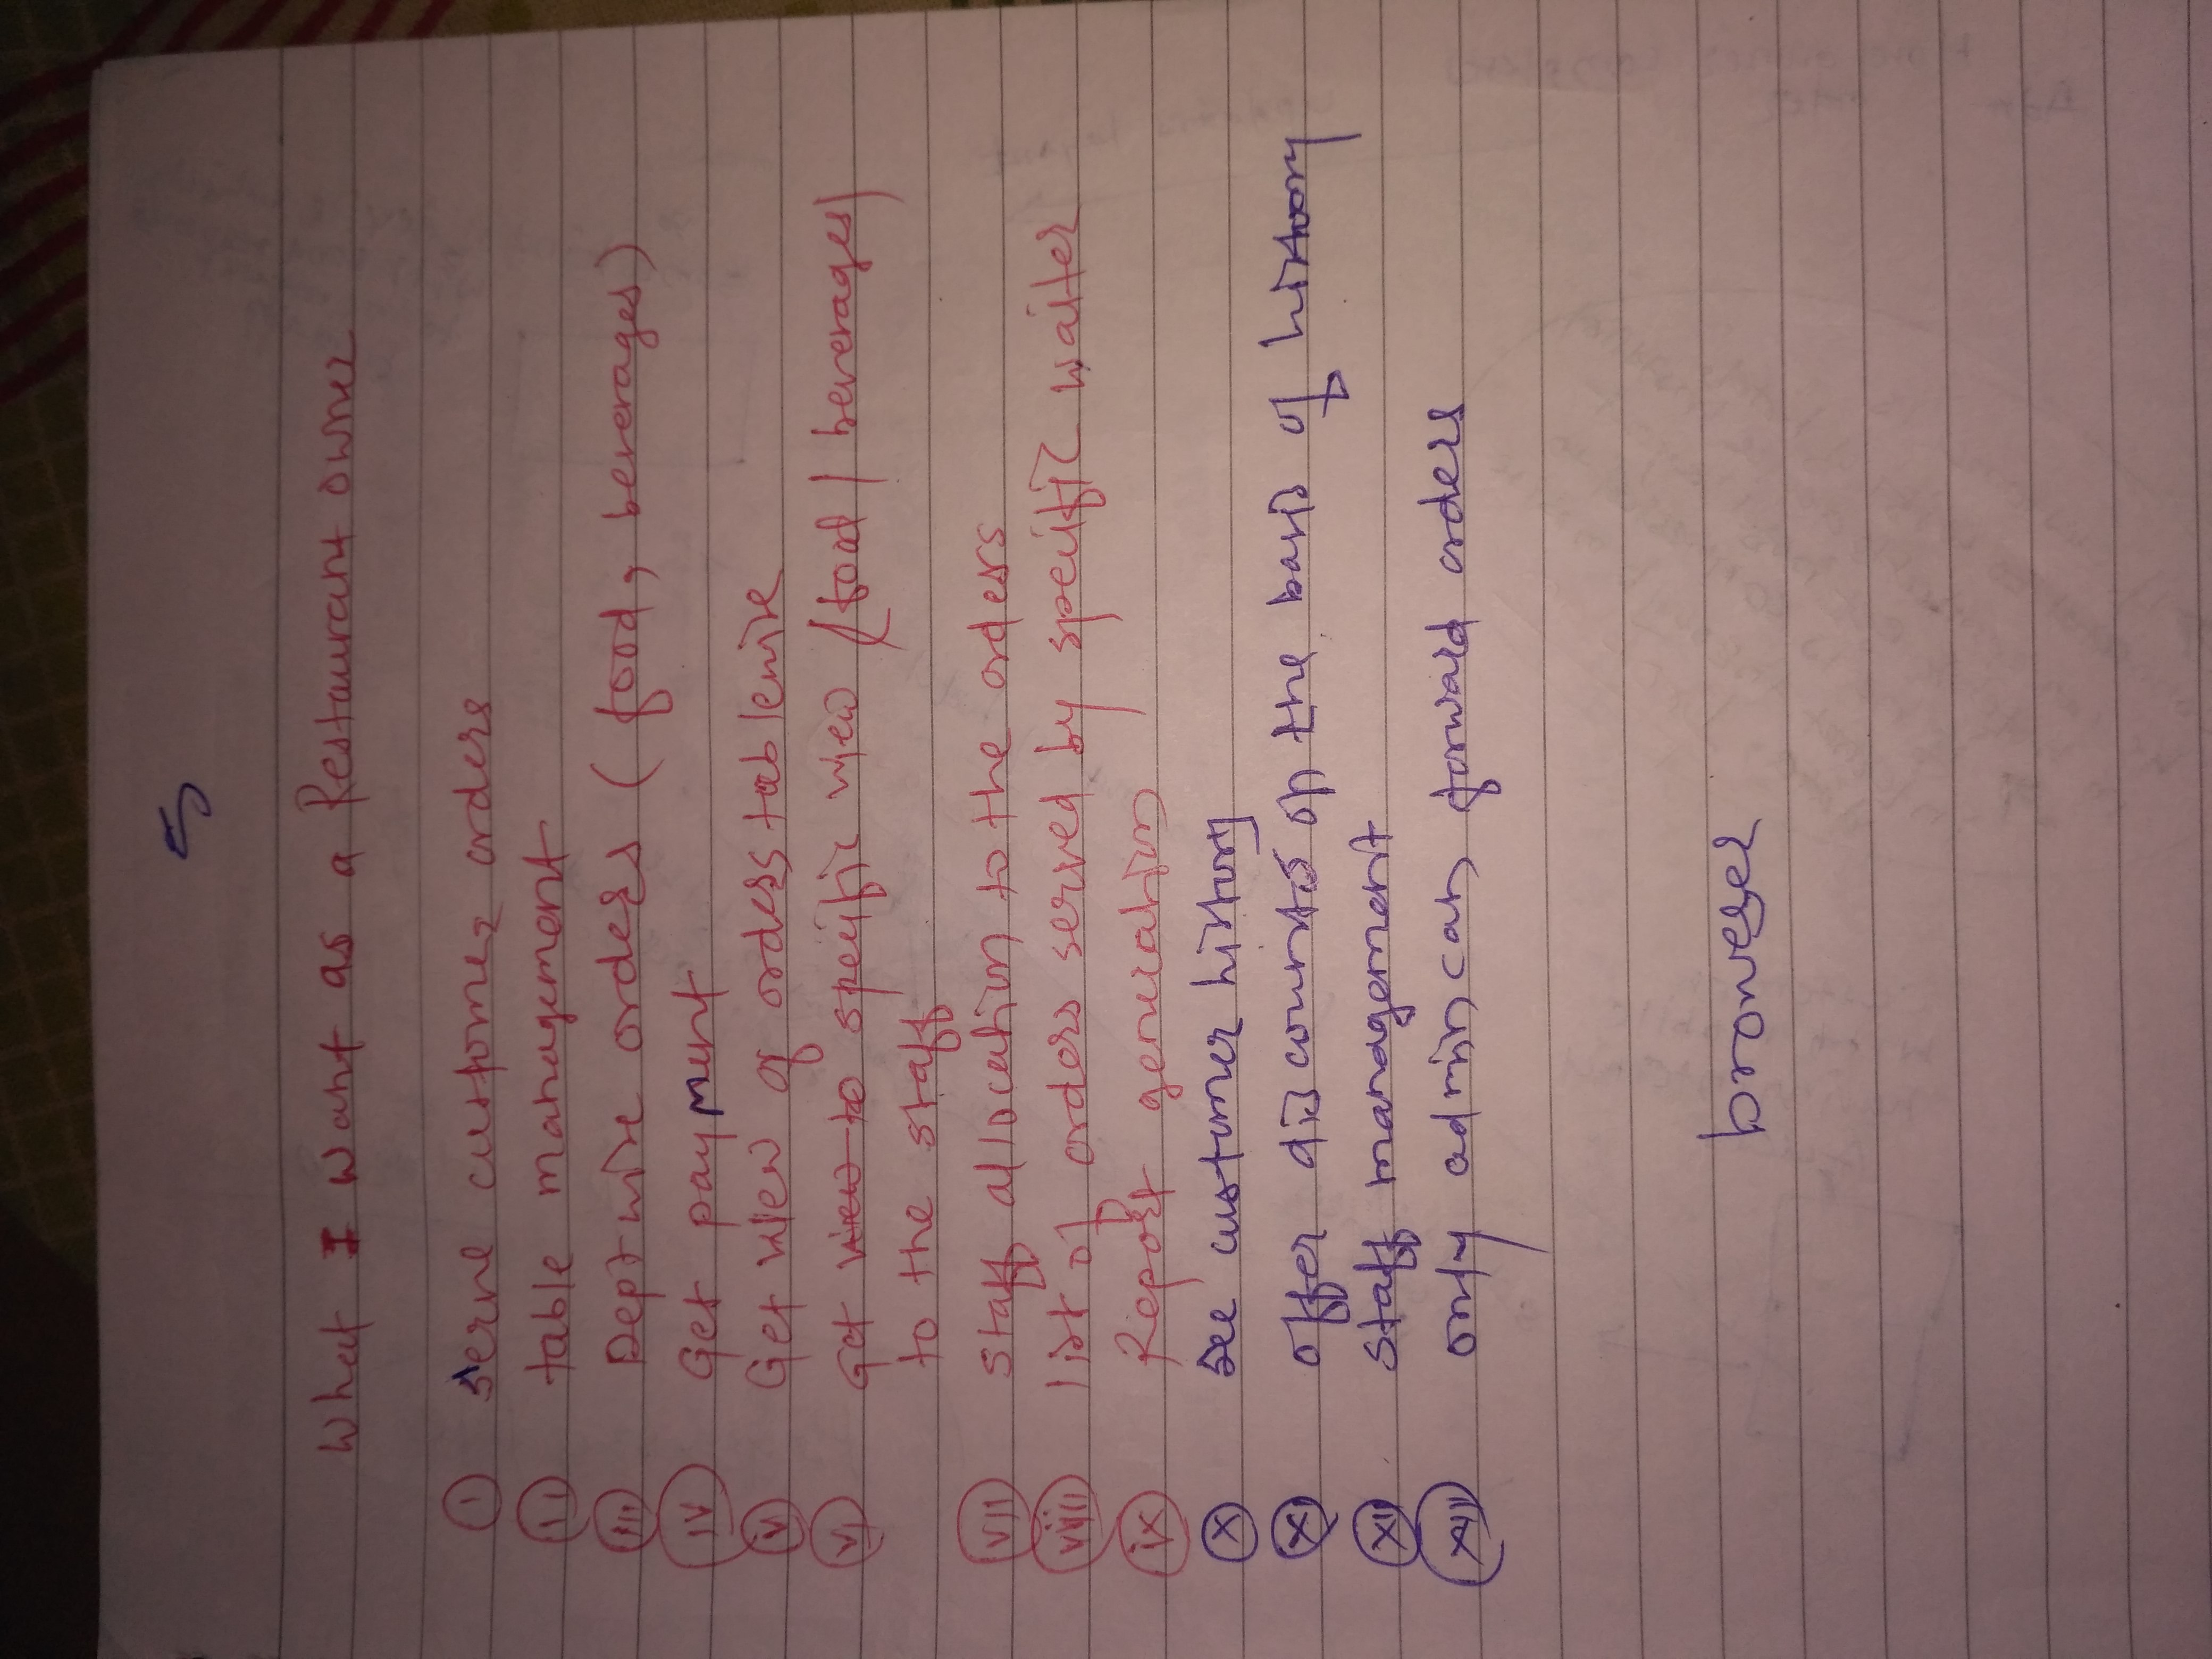 5
What I want as a Restaurant owner
i serve customer orders
ii table management
iii Deptwise orders ( food, beverages)
iv Get payment
v Get view of orders tablewise
vi Get view to specific view (food / beverages)
to the staff
vii staff allocation to the orders
viii list of orders served by specific waiter
ix Report generation
x see customer history
xi offer discounts on the basis of history
xii staff management
xiii only admin can forward orders
broweser